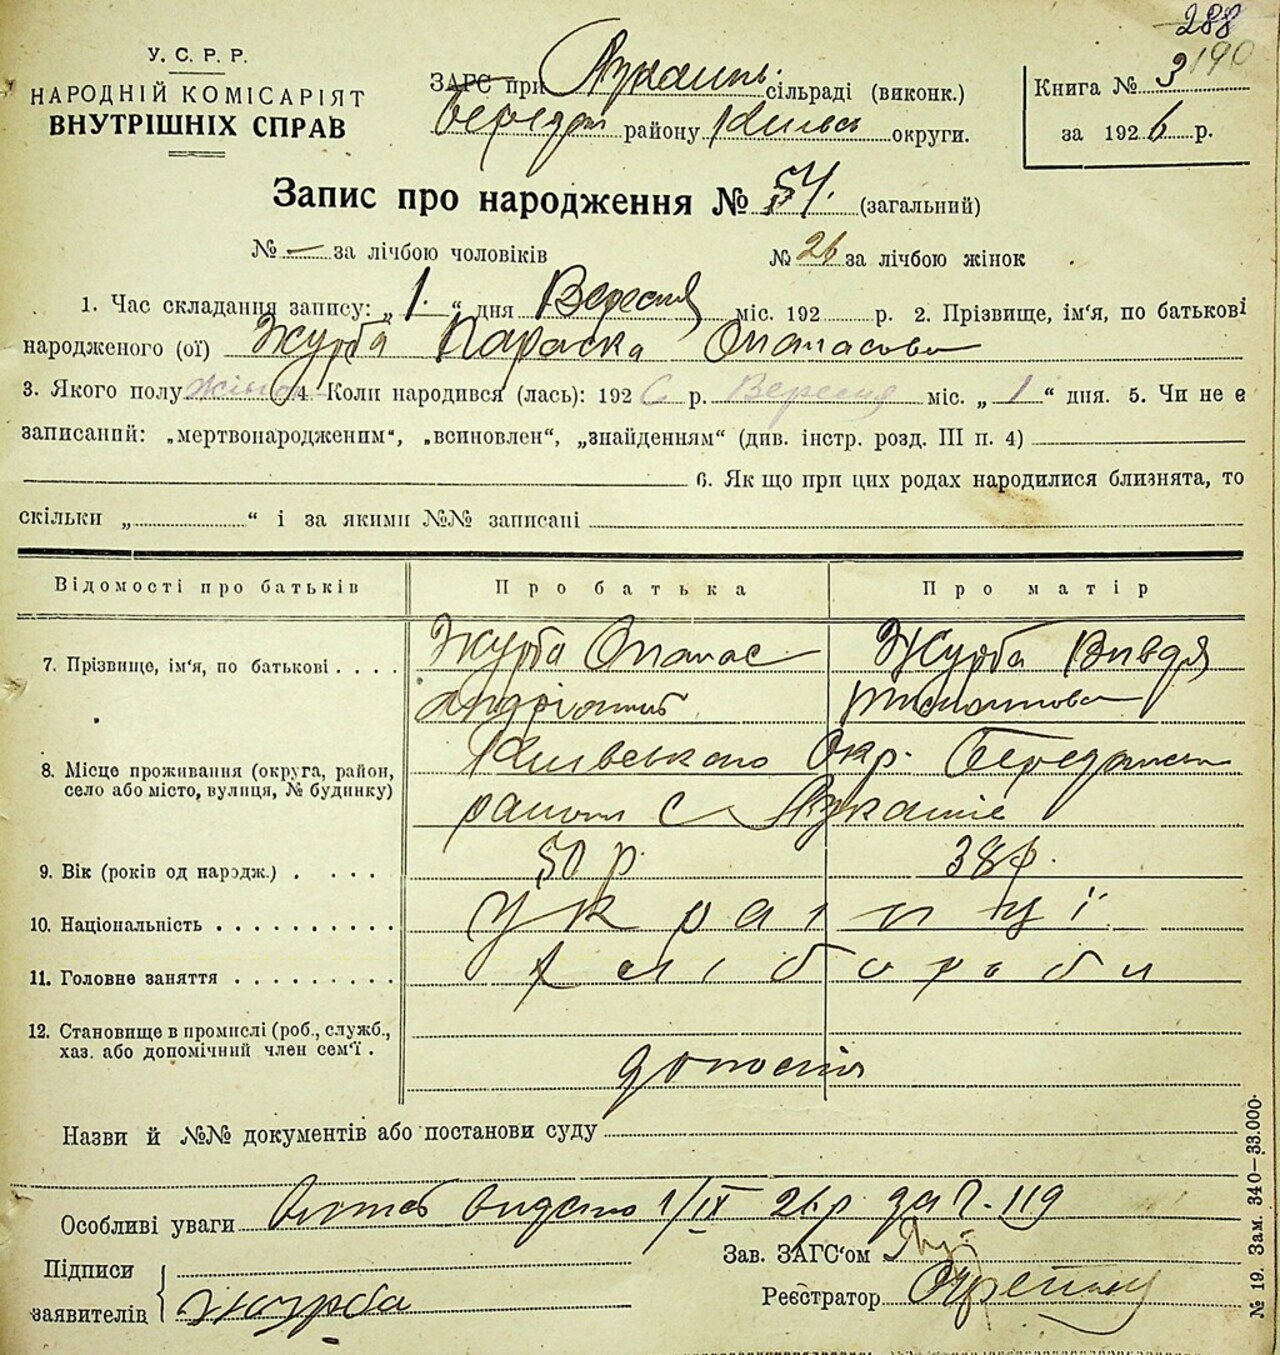 288
190
У. С. Р. Р.
НАРОДНІЙ КОМІСАРІЯТ
ВНУТРІШНІХ СПРАВ
ЗАГС при сільраді (виконк.)
району округи.
Книга № 3
за 1926 р.
Запис про народження № 54. (загальний)
№ — за лічбою чоловіків
№ 26 за лічбою жінок
1. Час складання запису: „1.“ дня Вересня міс. 192 р. 2. Прізвище, ім'я, по батькові
народженого (ої) Журба Параска Опанасова
3. Якого полу Жіноч. 4. Коли народився (лась): 1926 р. Вересня міс. „1“ дня. 5. Чи не є
записаний: „мертвонародженим“, „всиновлен“, „знайденням“ (див. інстр. розд. III п. 4)
6. Як що при цих родах народилися близнята, то
скільки „ “ і за якими №№ записані
Відомості про батьків
Про батька
Про матір
7. Прізвище, ім'я, по батькові
Журба Опанас
Журба Вивдя
8. Місце проживання (округа, район,
село або місто, вулиця, № будинку)
Київського Окр.
с
9. Вік (років од народж.)
50 р.
38 р.
10. Національність
Українці
11. Головне заняття
Хлібороби
12. Становище в промислі (роб., служб.,
хаз. або допомічний член сем'ї.
Назви й №№ документів або постанови суду
Особливі уваги видано 1/IX 26 р за №. 119
Підписи
заявителів
Журба
Зав. ЗАГС'ом
Реєстратор
№ 19. Зам. 340—33.000.